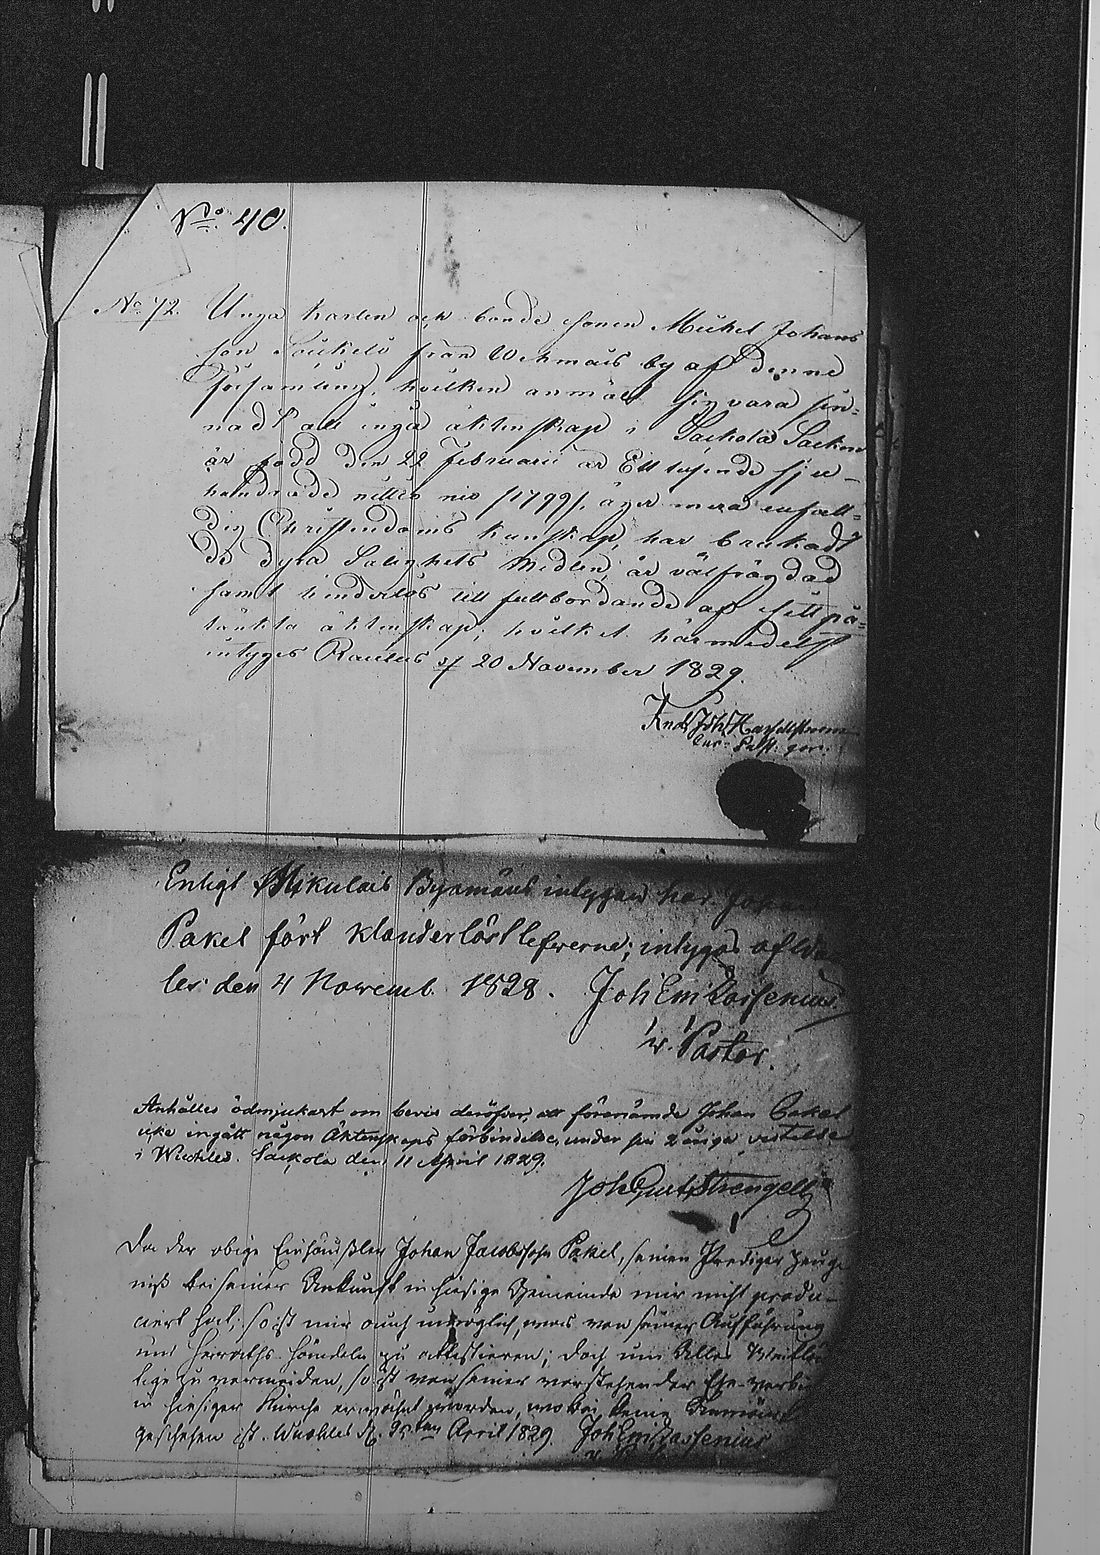 No. 40.
No 72. Unga karlen och bonde sonen Mickel Johans
son Soukelo från Wehmais by af denne
församling, hvilken anmält sig vara sin-
nadt att ingå äktenskap i Säckola Socken
är född den 22 Februarii år Ett tusende sju-
hundrade nittio nio /1799/, äger mera enfall-
dig Christendoms kunskap, har brukadt
de dyra Salighets Medlen, är välfrägdad
samt hinderlös till fullbordande af sitt på-
tänkta äktenskap; hvilket härmedelst
intygas Rautus af 20 November 1829.
Joh
Enligt Nikulais Byamäns intygan har Johan
Pakel fört klanderlöst lefverne; intygas af
les den 4 Novemb. 1828. Joh Em Rossenius
v. Pastor.
Anhålles ödmjukast om bevis deröfver, att förenämde Johan Pakel
icke ingått någon Äktenskaps förbindelse, under sin 2 åriga vistelse
i Wuohles. Säckola den 11 April 1829.
Joh Gust Strengell
Da der obige Einhäusler Johan Jacobssohn Pakel, seinen Prediger Zeug-
niß bei seiner Ankunft in hiesige Gemeinde mir nicht produ-
ciert hat; so ist mir auch unmöglich, was von seiner Aufführung
und Heiraths Händeln zu attestieren; doch um Alles
zu vermeiden, so ist von seiner vorstehender Ehe-verbin
in hiesiger Kirche erwähnt worden, wobei keine
geschehen ist. Wuohles d. 25ten April 1829. Joh Em Rossenius